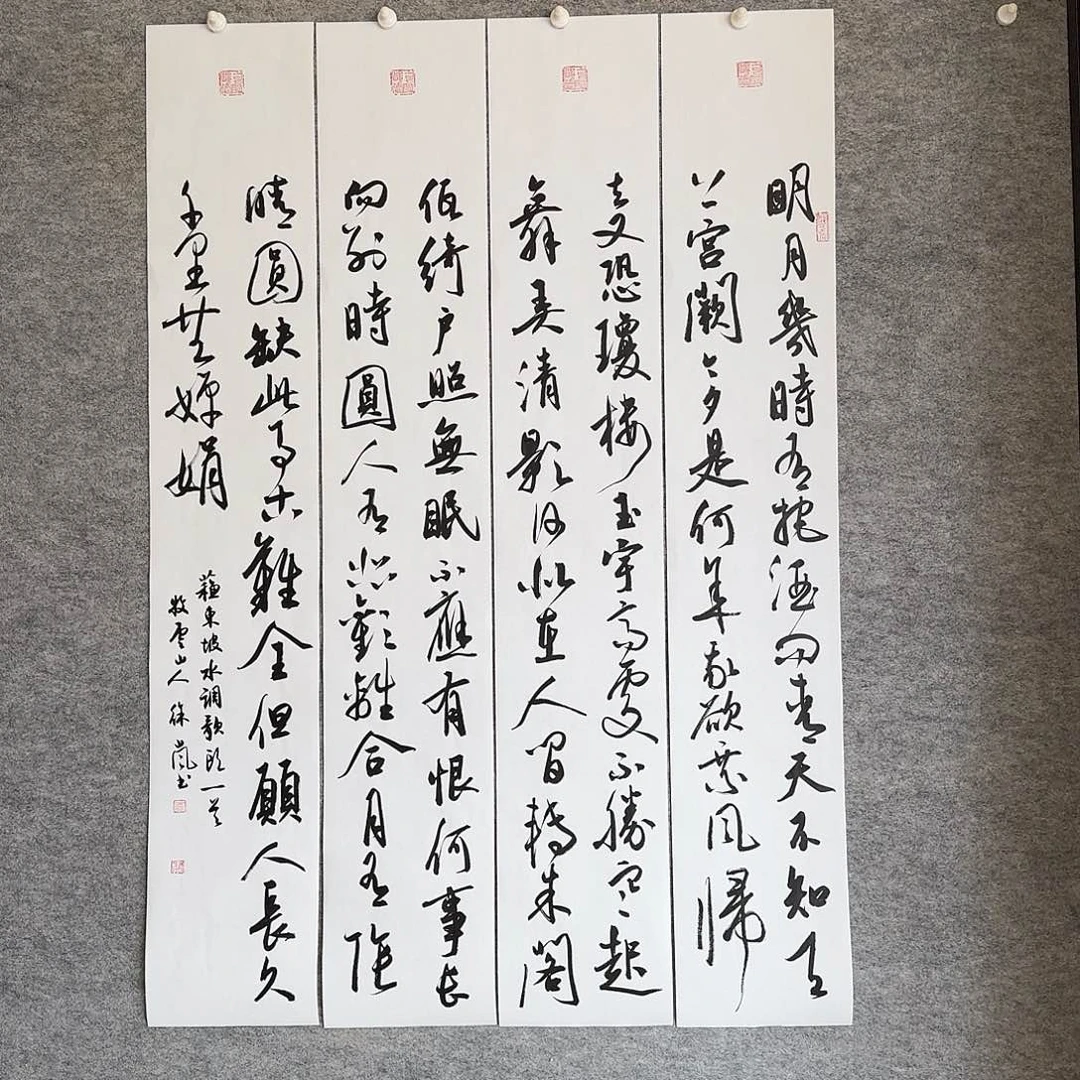 明月幾時有把酒問青天不知天
上宮闕今夕是何年我欲乘風歸
去又恐瓊樓玉宇高處不勝寒起
舞弄清影何似在人間轉朱閣
低綺户照無眠不應有恨何事長
向別時圓人有悲歡離合月有陰
晴圓缺此事古難全但願人長久
千里共嬋娟
蘇東坡水调歌頭一首
牧雲山人徐嵐书